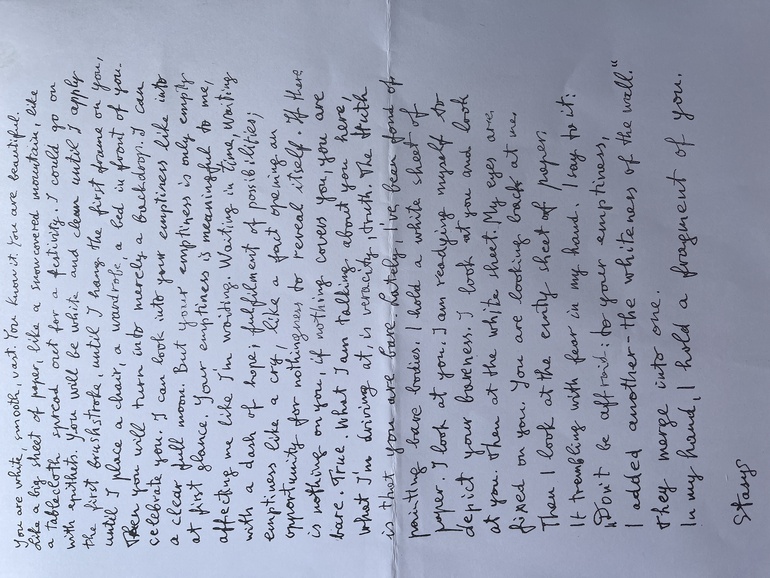 You are white, smooth, vast. You know it. You are beautiful.
Like a big sheet of paper, like a snowcovered mountain, like
a tablecloth spread out for a festivity. I could go on
with epithets. You will be white and clean until I apply
the first brushstroke, until I hang the first frame on you,
until I place a chair, a wardrobe, a bed in front of you.
Then you will turn into merely a backdrop. I can
celebrate you. I can look into your emptiness like into
a clear full moon. But your emptiness is only empty
at first glance. Your emptiness is meaningful to me,
affecting me like I'm waiting. Waiting in time, waiting
with a dash of hope, fulfilment of possibilities;
emptiness like a cry, like a fact opening an
opportunity for nothingness to reveal itself. If there
is nothing on you, if nothing covers you, you are
bare. True. What I am talking about you here,
what I'm driving at, is veracity, truth. The truth
is that you are bare. Lately, I've been fond of
painting bare bodies. I hold a white sheet of
paper. I look at you. I am readying myself to
depict your bareness. I look at you and look
at you. Then at the white sheet. My eyes are
fixed on you. You are looking back at me.
Then I look at the empty sheet of paper.
It trembling with fear in my hand. I say to it:
„Don't be affraid: to your emptiness,
I added another - the whiteness of the wall."
They merge into one.
In my hand, I hold a fragment of you.
Stays